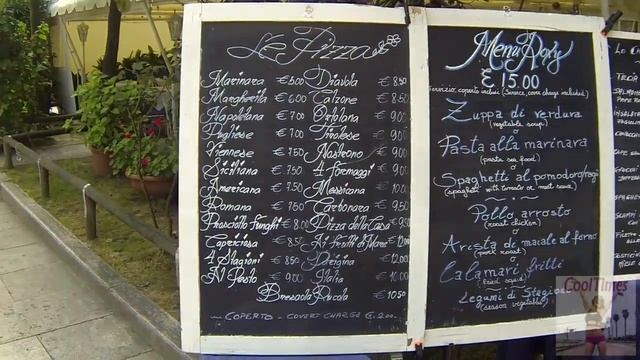 Le Pizza
Marinara €5.00 Diavola € 8.50
Margherita € 6.00 Calzone € 8.50
Napoletana € 7.00 Ortolana € 9.00
Pugliese € 7.00 Tirolese € 9.00
Viennese € 7.50 Nostrano € 9.00
Siciliana € 7.50 4 Formaggi € 9.00
Americana € 7.50 Messicana € 10.00
Romana € 7.50 Carbonara € 9.50
Prosciutto Funghi € 8.00 Pizza della Casa € 9.50
Capricciosa € 8.50 Ai Frutti di Mare € 12.00
4 Stagioni € 8.50 € 12.00
Al Pesto € 9.00 Italia € 10.00
Bresaola Rucola € 10.50
- COPERTO - COVERT CHARGE €. 2.00.
Menù A
€ 15.00
Servizio, coperto inclusi (Service, cover charge included)
Zuppa di verdura
(vegetable soup)
o
Pasta alla marinara
(pasta sea food)
o
Spaghetti al pomodoro/ragù
(spaghetti with tomato or meat sauce)
Pollo arrosto
(roast chicken)
o
Arista di maiale al forno
(pork roast)
o
Calamari fritti
(fried squid)
Legumi di Stagione
(season vegetable)
CoolTimes